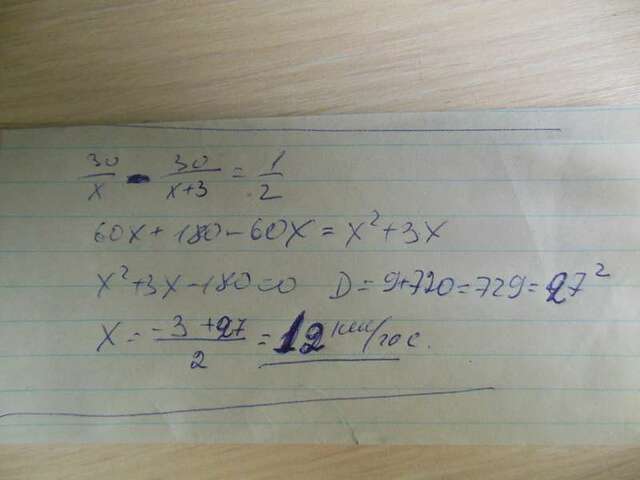 30/x - 30/x+3 = 1/2
60x + 180 - 60x = x² + 3x
x² + 3x - 180 = 0 D = 9+720 = 729 = 27²
x = -3 + 27/2 = 12 км/гос.